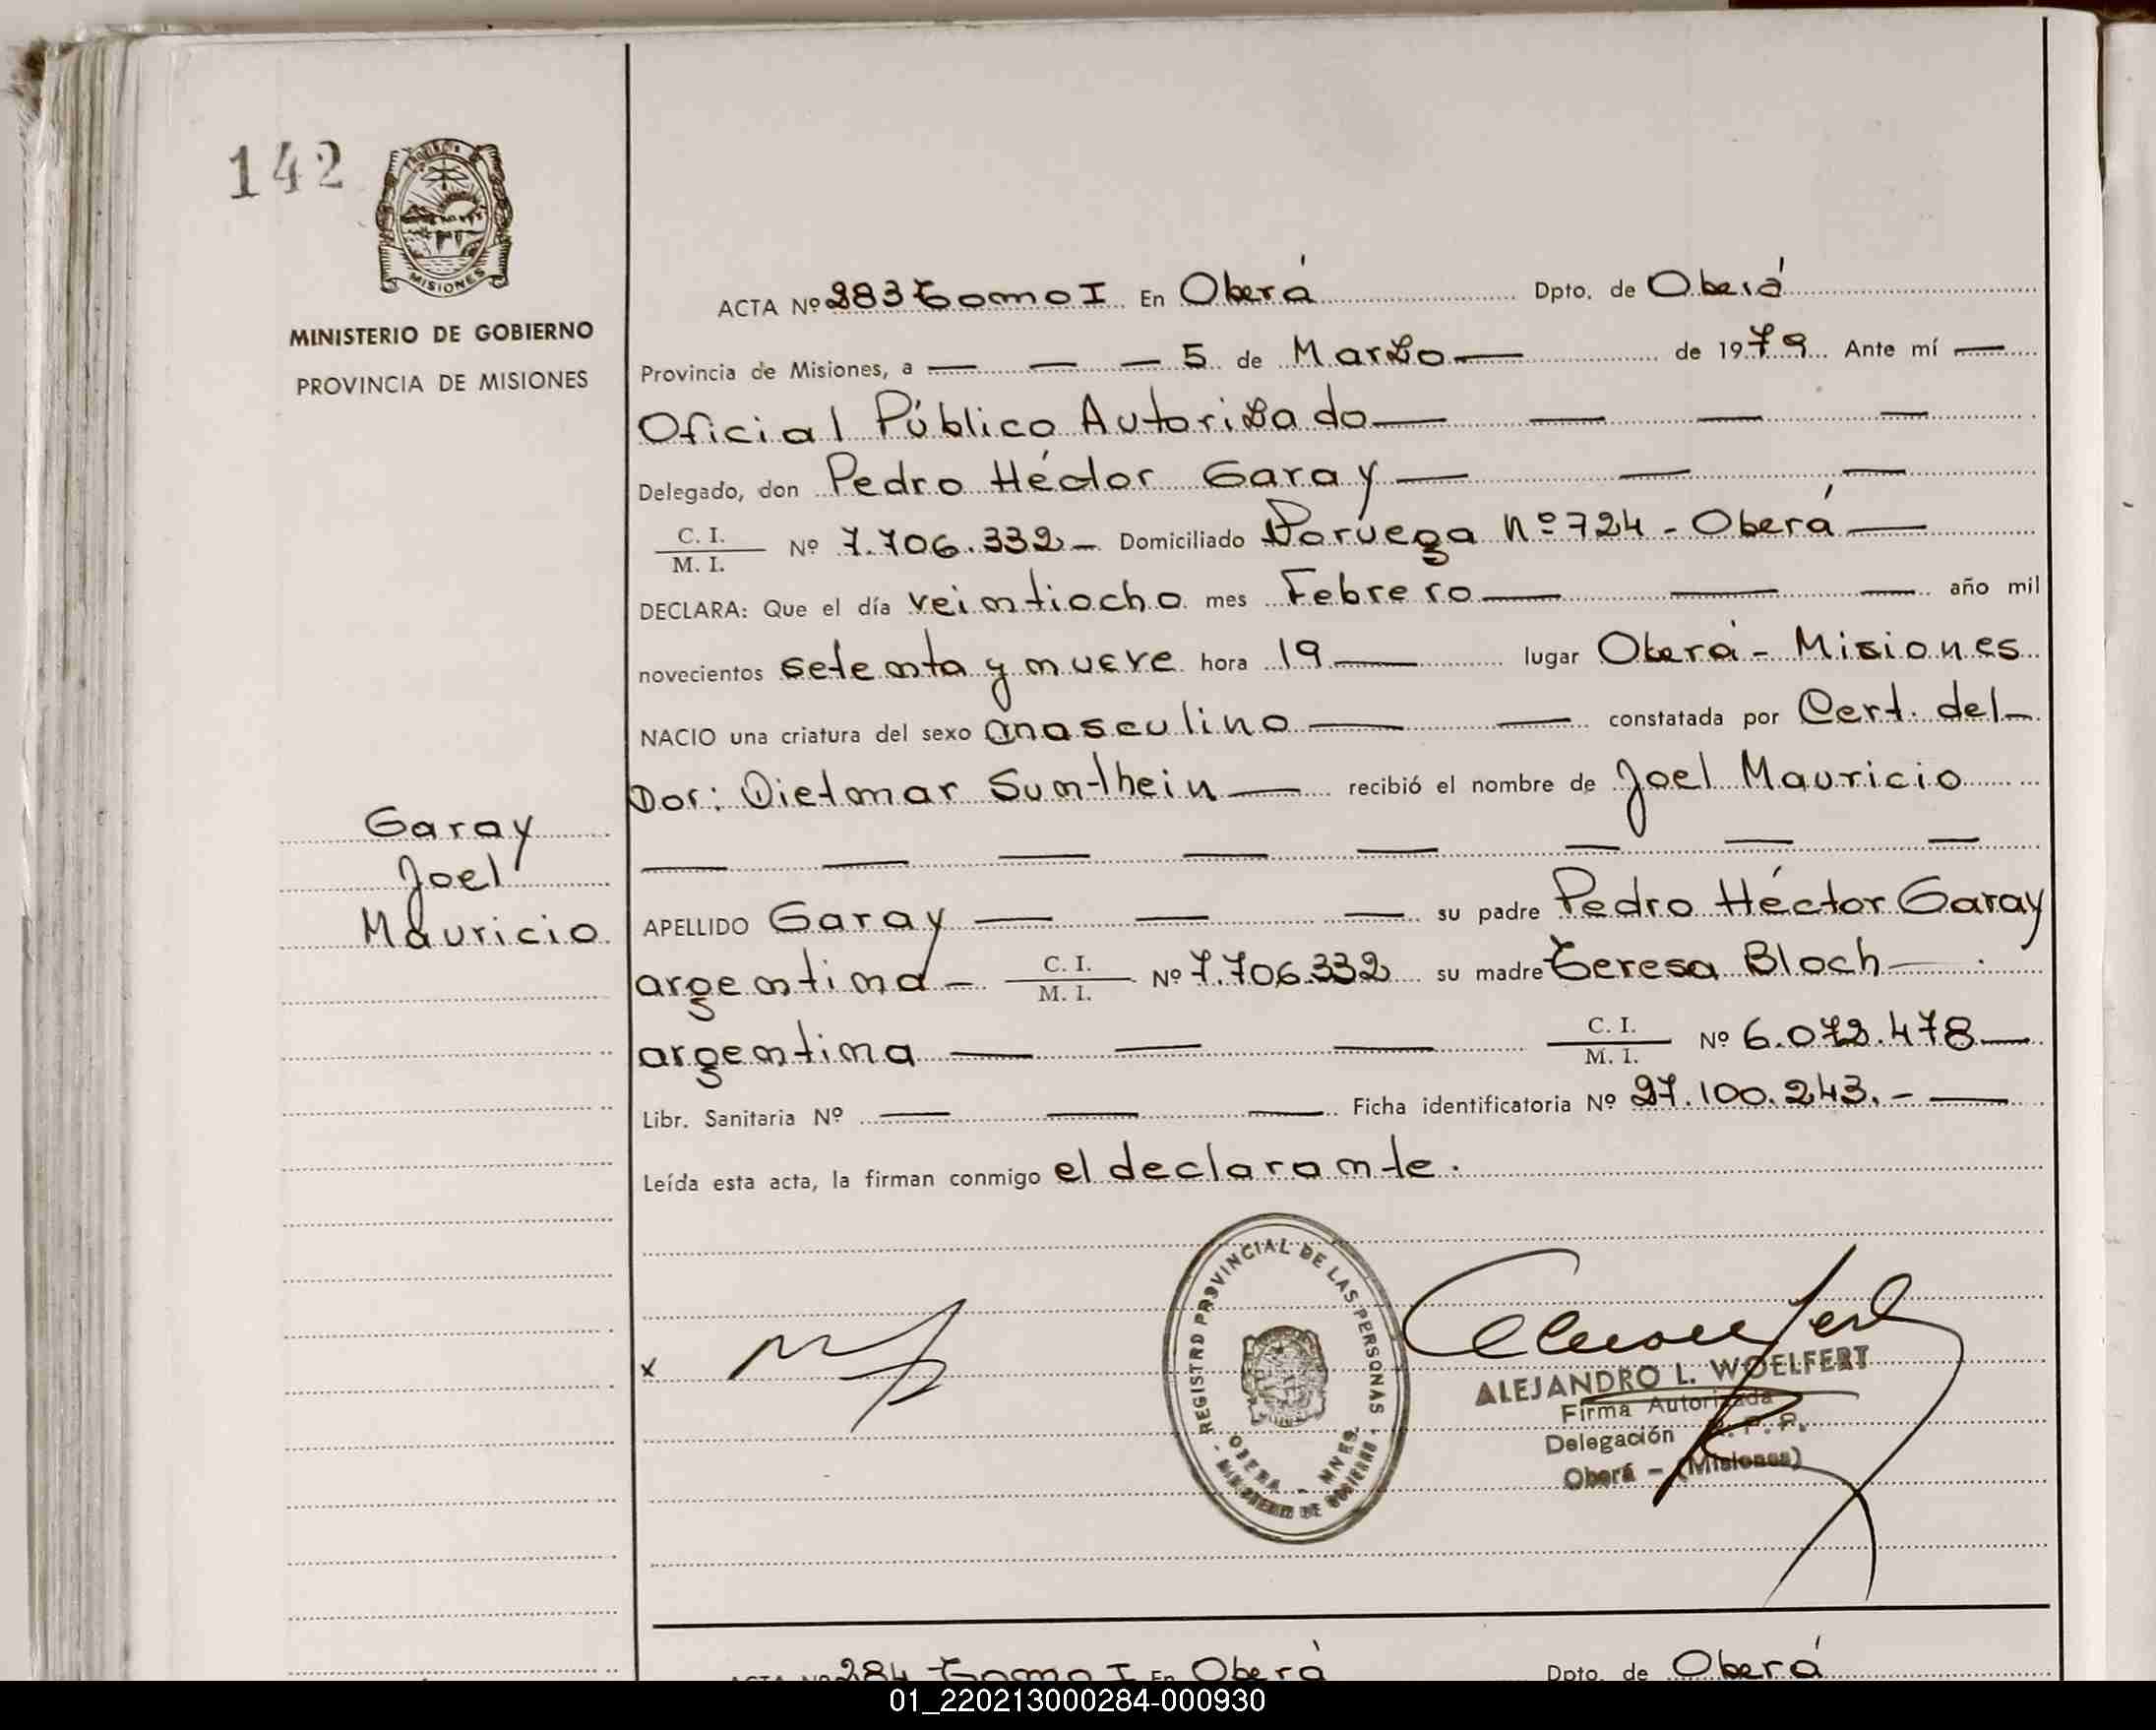 142
PROVINCIA DE
MISIONES
MINISTERIO DE GOBIERNO
PROVINCIA DE MISIONES
Garay
Joel
Mauricio
ACTA Nº 283 Tomo I En Oberá Dpto. de Oberá
Provincia de Misiones, a — — — 5 de Marzo — de 1979 Ante mí —
Oficial Público Autorizado — — — —
Delegado, don Pedro Héctor Garay — — —
C. I.
M. I. Nº 7.706.332 — Domiciliado Noruega Nº 724 - Oberá —
DECLARA: Que el día veintiocho mes Febrero — — — año mil
novecientos setenta y nueve hora 19 — lugar Oberá - Misiones
NACIO una criatura del sexo masculino — — constatada por Cert. del —
Dor: Dietmar Sumthein — recibió el nombre de Joel Mauricio
— — — — — — — —
APELLIDO Garay — — — su padre Pedro Héctor Garay
argentina — C. I.
M. I. Nº 7.706.332 su madre Teresa Bloch —
argentina — — — C. I.
M. I. Nº 6.072.478 —
Libr. Sanitaria Nº — — — Ficha identificatoria Nº 27.100.243. - —
Leída esta acta, la firman conmigo el declarante.
REGISTRO PROVINCIAL DE LAS PERSONAS
OBERA - MNES.
- MINISTERIO DE GOBIERNO -
x
ALEJANDRO L. WOELFERT
Firma Autorizada
Delegación R. P. P.
Oberá - (Misiones)
ACTA Nº 284 Tomo I En Oberá Dpto. de Oberá
01_220213000284-000930